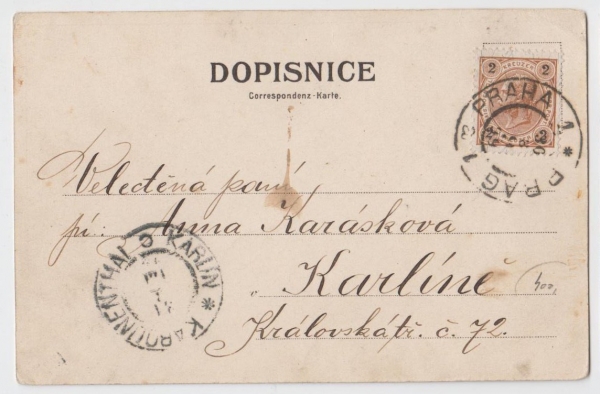 DOPISNICE
Correspondenz-Karte.
2 KREUZER 2
PRAHA 1
PRAG 1
Velectěná paní
pí. Anna Karásková
Karlíně
Královská tř. č. 72.
KARLÍN * KAROLINENTHAL